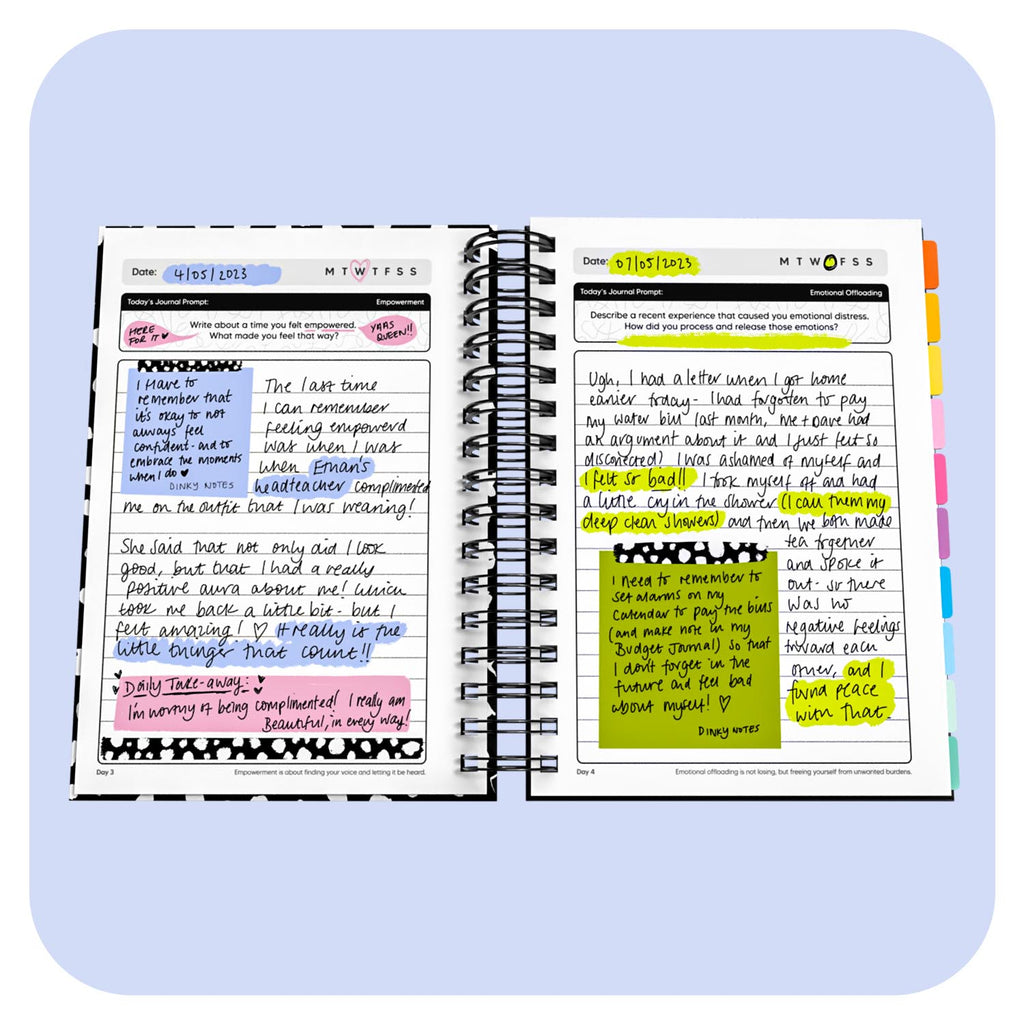 Date: 4/05/2023 M T W T F S S
Today's Journal Prompt: Empowerment
HERE FOR IT
Write about a time you felt empowered.
What made you feel that way?
YAAS QUEEN!!
I HAVE to
remember that
it's okay to not
always feel
confident - and to
embrace the moments
when I do ♥
DINKY NOTES
The last time
I can remember
feeling empowerd
was when I was
when Ethan's
headteacher complimented
me on the outfit that I was wearing!
She said that not only did I look
good, but that I had a really
positive aura about me! Which
took me back a little bit - but I
felt amazing! ♡ It really is the
little thinger that count!!
Daily Take-away:
I'm worthy of being complimented! I really am
Beautiful, in every way!
Day 3 Empowerment is about finding your voice and letting it be heard.
Date: 07/05/2023 M T W F S S
Today's Journal Prompt: Emotional Offloading
Describe a recent experience that caused you emotional distress.
How did you process and release those emotions?
Ugh, I had a letter when I got home
earlier today - I had forgotten to pay
my water bill last month, me + Dave had
an argument about it and I just felt so
disconected! I was ashamed of myself and
I felt so bad!! I took myself off and had
a little cry in the shower (I call them my
deep clean showers) and then we both made
tea together
and spoke it
out - so there
was no
negative feelings
toward each
other, and I
found peace
with that.
I need to remember to
set alarms on my
Calendar to pay the bills
(and make note in my
Budget Journal) so that
I don't forget in the
future and feel bad
about myself! ♡
DINKY NOTES
Day 4 Emotional offloading is not losing, but freeing yourself from unwanted burdens.